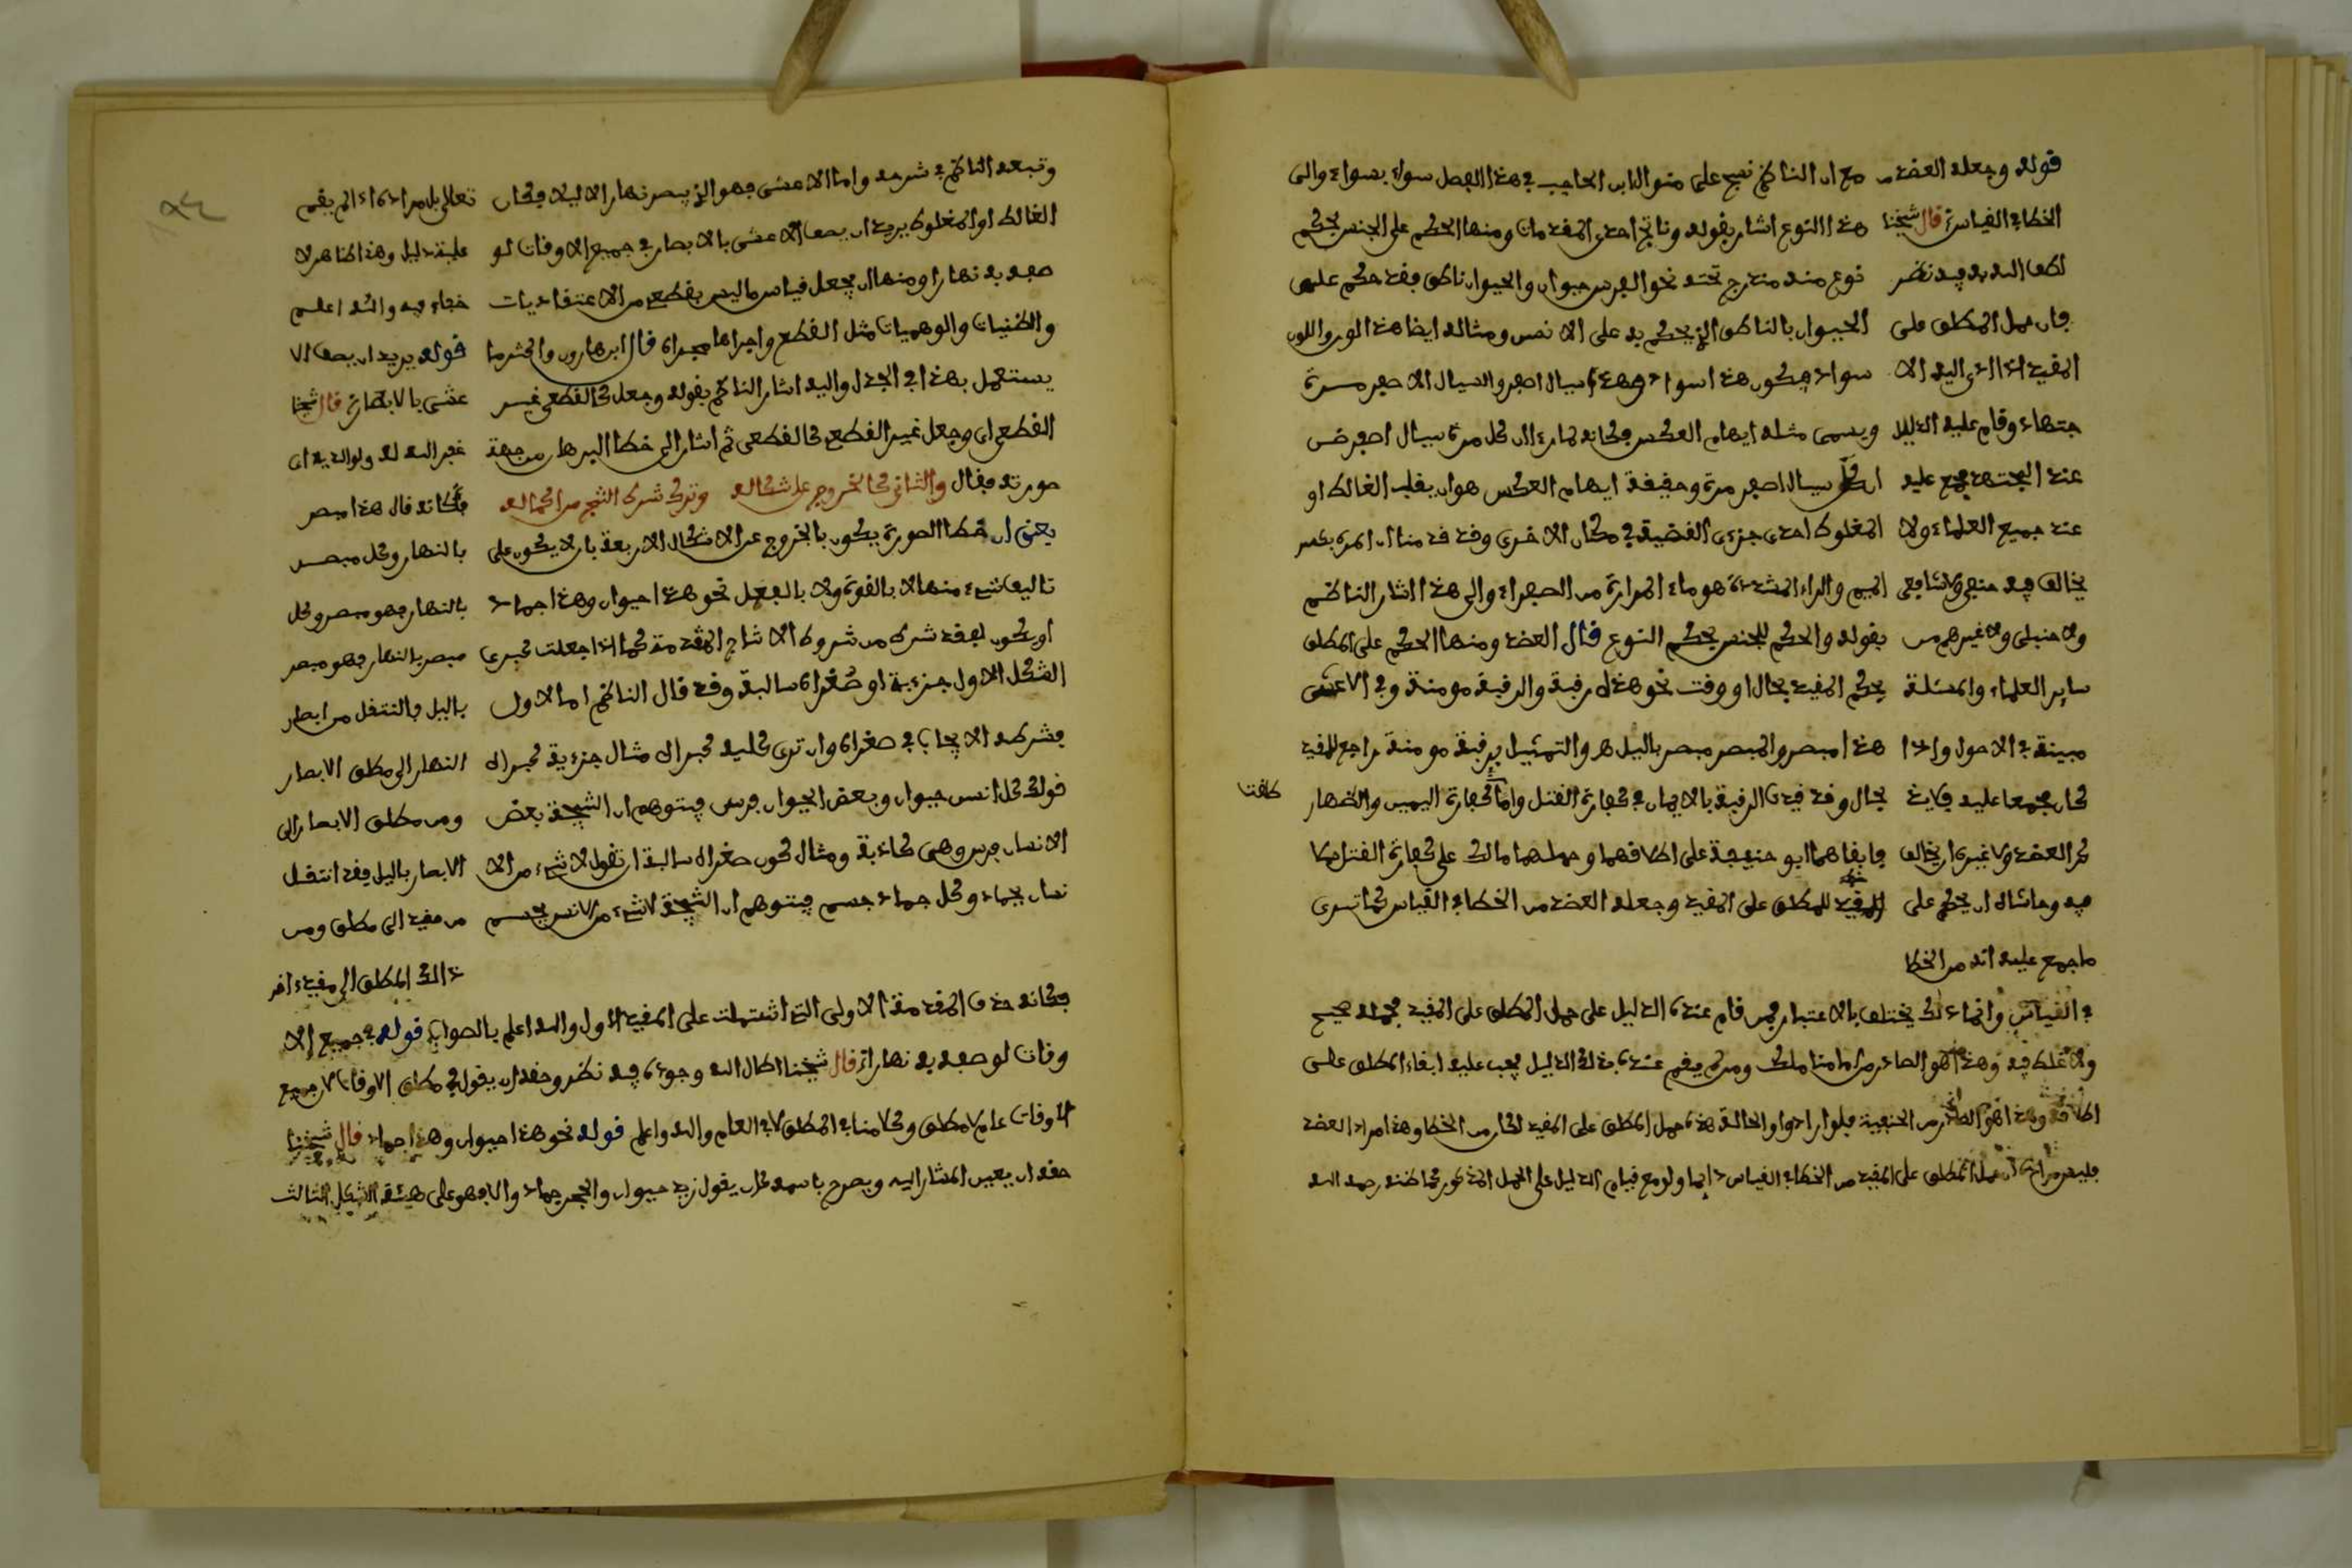 مع ان الناظم نسج على منوال ابن الحاجب في هذا الفصل سواء بسواء والى
هذا النوع اشار بقوله وناتج احدى المقدمات ومنها الحكم على الجنس بحكم
نوع منه مندرج تحته نحو الفرس حيوان والحيوان ناطق فقد حكم على
الحيوان بالناطق الذي يحكم به على الانس ومثاله ايضا هذا لون واللون
سواد فيكون هذا سواد وهذا سيال اصفر والسيال الاصفر مرة
ويسمى مثله ايهام العكس فكانه لما راى ان كل مرة سيال اصفر ظن
ان كل سيال اصفر مرة وحقيقة ايهام العكس هو ان يقلب الغالط او
المغلوط احدى جزءى القضية في مكان الاخرى وقد قدمنا ان المرة بكسر
الميم والراء المشددة هو ماء المرارة من الصفراء والى هذا اشار الناظم
بقوله والحكم للجنس بحكم النوع قال العضد ومنها الحكم على المطلق
بحكم المقيد بحال او وقت نحو هذه رقبة والرقبة مومنة وفي الاعشى
هذا مبصر والمبصر مبصر باليل هـ والتمثيل برقبة مومنة راجع للمقيد
بحال وقد قيدت الرقبة بالايمان في كفارة القتل واما كفارة اليمين والظهار
فابقاهما ابو حنيفة على اطلاقهما وحملهما مالك على كفارة القتل
للمطلق على المقيد وجعله العضد من الخطا في القياس كما ترى
قوله وجعله العضد من
الخطا في القياس قال شيخنا
لطف الله به فيه نظر
فان حمل المطلق على
المقيد اذا ادى اليه الا
جتهاد وقام عليه الدليل
عند المجتهد مجمع عليه
عند جميع العلماء ولا
يخالف فيه حنفي ولا شافعي
ولا حنبلي ولا غيرهم من
ساير العلماء والمسئلة
مبينة في الاصول واذا
كان مجمعا عليه فلا يمكن
العضد ولا غيره ان يخالف
فيه وحاشاه ان يحكم على
ما جمع عليه انه من الخطا
في القياس وانما ذلك يختلف بالاعتبار فمن قام عنده الدليل على حمل المطلق على المقيد فحمله صحيح
ولا غلط فيه وهذا هو الصادر من امامنا مالك ومن لم يقم عنده ذلك الدليل يجب عليه ابقاء المطلق على
اطلاقه وهذا هو الصادر من الحنفية فلو ارادوا والحالة هذه حمل المطلق على المقيد لكان من الخطا وهذا مراد العضد
فليس مراده ان حمل المطلق على المقيد من الخطا في القياس دايما ولو مع قيام الدليل على الحمل المذكور كما ظنه رحمه الله
وتبعه الناظم في شرحه واما الاعشى فهو الذي يبصر نهارا لا ليلا فكان
الغالط او المغلوط يريد ان يصف الاعشى بالابصار في جميع الاوقات لو
صفه به نهارا ومنها ان يجعل قياس ما ليس بقطعي من الاعتقاديات
والظنيات والوهميات مثل القطع واجراها مجراه قال ابن هارون واكثر ما
يستعمل بهذا في الجدل واليه اشار الناظم بقوله وجعل كالقطعي غير
القطعي اى وجعل غير القطعي كالقطعي ثم اشار الى خطا البرهان من جهة
صورته فقال والثاني كالخروج عن اشكاله وترك شرط النتج من اكماله
يعني ان خطا الصورة يكون بالخروج عن الاشكال الاربعة بان لا يكون على
تاليف شىء منها لا بالقوة ولا بالفعل نحو هذا حيوان وهذا جماد
او يكون لفقد شرط من شروط الانتاج المقدمة كما اذا جعلت كبرى
الشكل الاول جزءية او صغراه سالبة وقد قال الناظم اما الاول
فشرطه الايجاب في صغراه وان ترى كلية كبراه مثال جزءية كبراه
قولك كل انس حيوان وبعض الحيوان فرس فيتوهم ان النتيجة بعض
الانسان فرس وهي كاذبة ومثال كون صغراه سالبة ان تقول لا شىء من الا
نسان بجماد وكل جماد جسم فيتوهم ان النتيجة لا شىء من الانس بجسم
تعالى بل مراده اذا لم يقم
عليه دليل وهذا ظاهر لا
خفاء فيه والله اعلم
قوله يريد ان يصف الا
عشى بالابصار قال شيخنا
غفر الله له ولوالديه اى
فكانه قال هذا مبصر
بالنهار وكل مبصر
بالنهار فهو مبصر وكل
مبصر بالنهار فهو مبصر
باليل فانتقل من ابصار
النهار الى مطلق الابصار
ومن مطلق الابصار الى
الابصار باليل فقد انتقل
من مقيد الى مطلق ومن
ذلك المطلق الى مقيد اخر
فكانه حذف المقدمة الاولى التي اشتملت على المقيد الاول والله اعلم بالصواب قوله في جميع الا
وقات لو صفه به نهارا قال شيخنا اطال الله وجوده فيه نظر وحقه ان يقول في مطلق الاوقات لان جميع
الاوقات عام لا مطلق وكلامنا في المطلق لا في العام والله اعلم قوله نحو هذا حيوان وهذا جماد قال شيخنا
حقه ان يعين المشار اليه ويصرح باسمه كان يقول زيد حيوان والحجر جماد والا فهو على هيئة الشكل الثالث